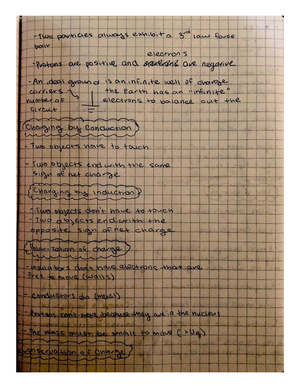 - Two particles always exhibit a 3rd law force
pair
electrons
- Protons are positive and are negative
- An ideal ground is an infinite well of charge
carriers the Earth has an "infinite"
number of electrons to balance out the
circuit
Charging by Conduction
- Two objects have to touch
- Two objects end with the same
sign of net charge
Charging by Induction
- Two objects don't have to touch
- Two objects end with the
opposite sign of net charge
Polarization of charge
- insulators don't have electrons that are
free to move (walls)
- conductors do (metal)
- Protons can't move because they are in the nucleus
- The mass must be small to move
Conservation of Charge